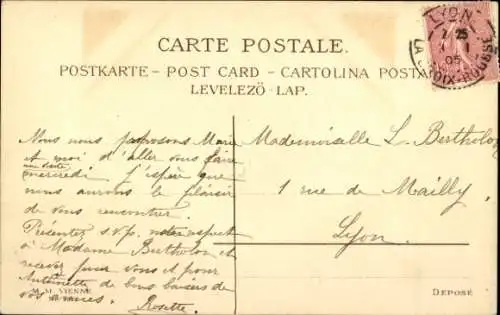 CARTE POSTALE.
POSTKARTE - POST CARD - CARTOLINA POSTA
LEVELEZÖ-LAP.
LYON
7 25
1
05
LA CROIX-ROUSSE
Nous nous proposons Marie
et moi d'aller vous faire
une visite
mercredi j'espère que
nous aurons le plaisir
de vous rencontrer.
Présentez s.v.p. notre respect
à Madame Bertholon et
recevez pour vous et pour
Antoinette de bons baisers de
vos amies.
Rosette
Mademoiselle L. Bertholon
1 rue de Mailly
Lyon.
M.M. VIENNE
DEPOSÉ